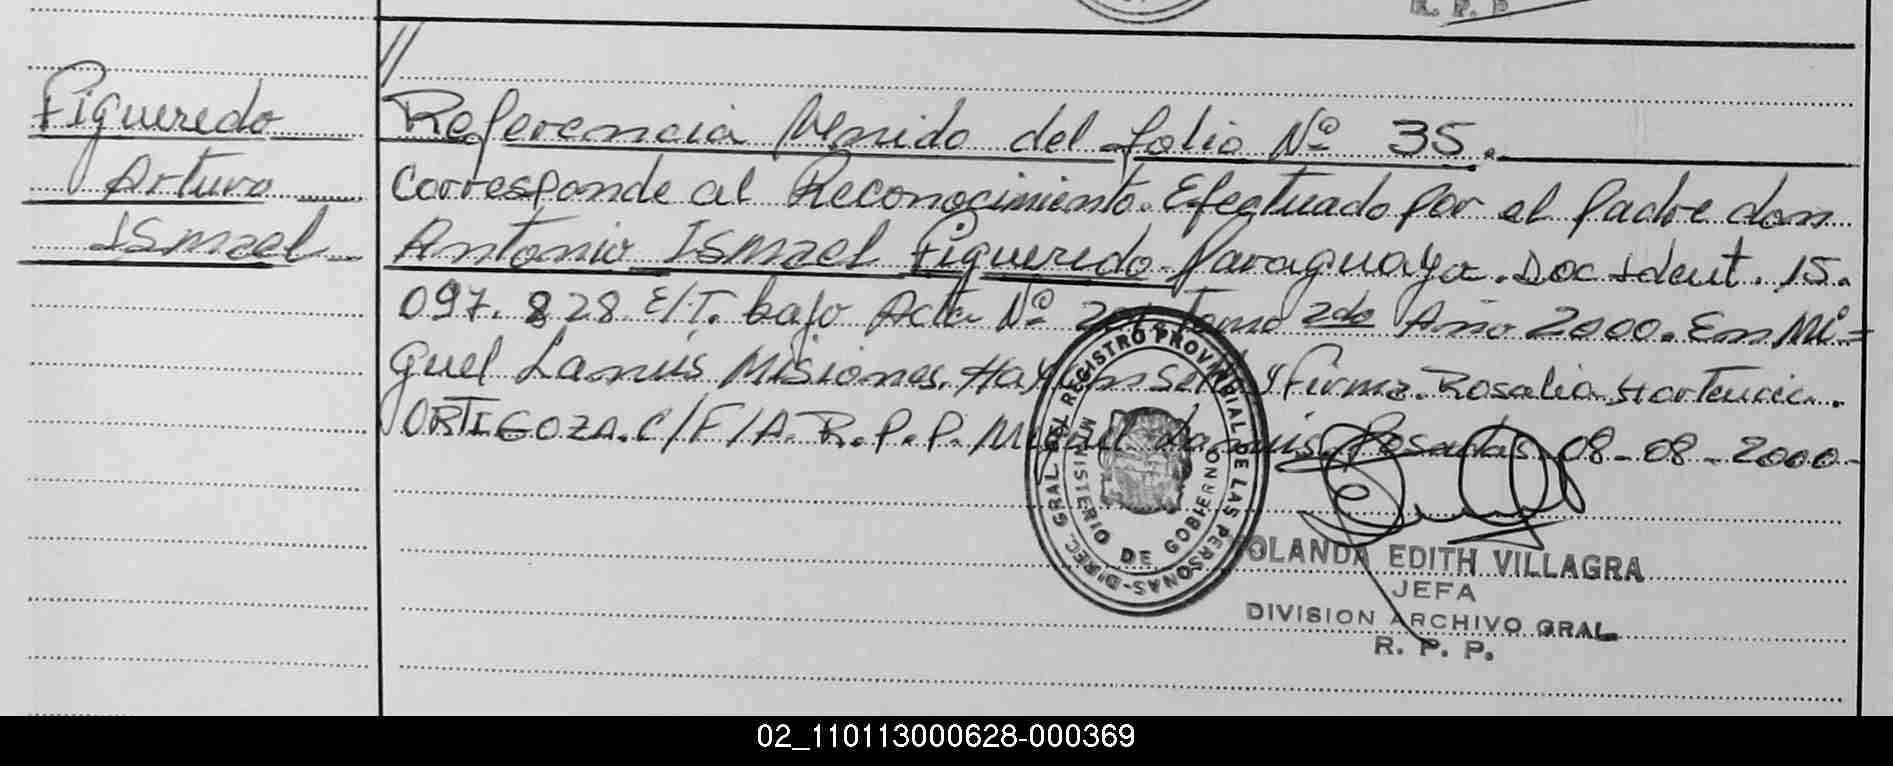 R. P. P.
//
Figueredo
Arturo
Ismael
Referencia Venido del folio Nº 35.
Corresponde al Reconocimiento. Efectuado por el padre don
Antonio Ismael Figueredo. Paraguaya. Doc Ident. 15.
097.828 E/T. bajo Acta Nº Tomo 2do Año 2000. En Mi=
guel Lanús Misiones. Hay un sello y firma. Rosalia Hortencia.
ORTIGOZA. C/F/A. R.P.P. Miguel Lanús. Posadas. 08-08-2000-
DIREC. GRAL. DEL REGISTRO PROVINCIAL DE LAS PERSONAS-
MINISTERIO DE GOBIERNO
YOLANDA EDITH VILLAGRA
JEFA
DIVISION ARCHIVO GRAL.
R. P. P.
02_110113000628-000369